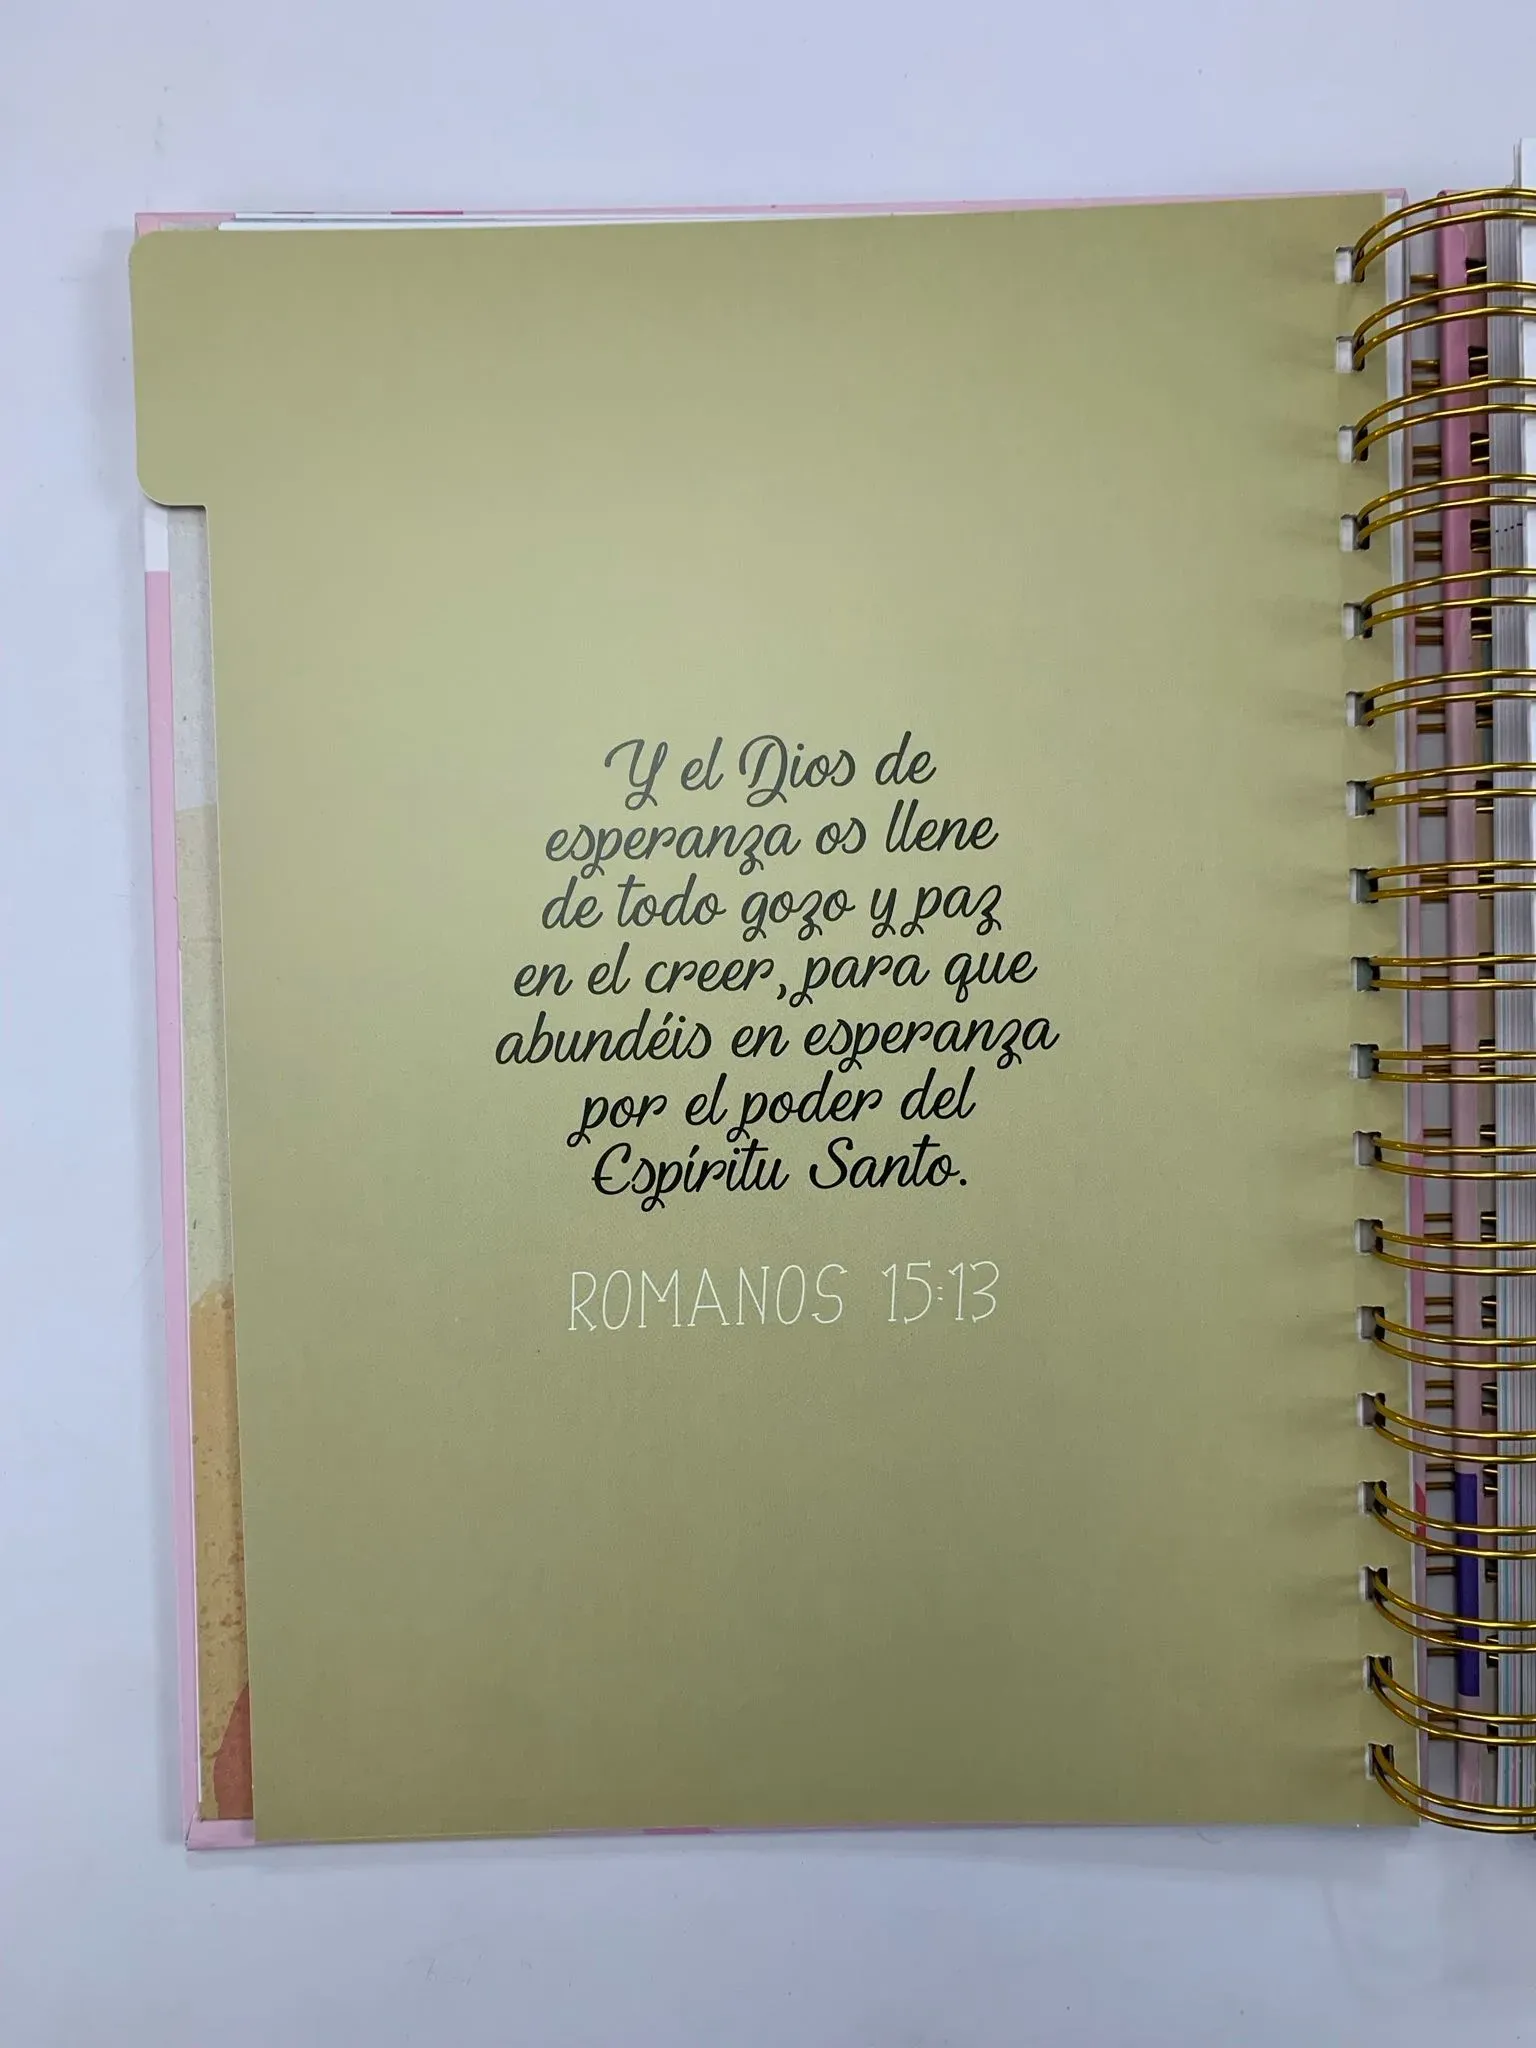 Y el Dios de
esperanza os llene
de todo gozo y paz
en el creer, para que
abundéis en esperanza
por el poder del
Espíritu Santo.
ROMANOS 15:13